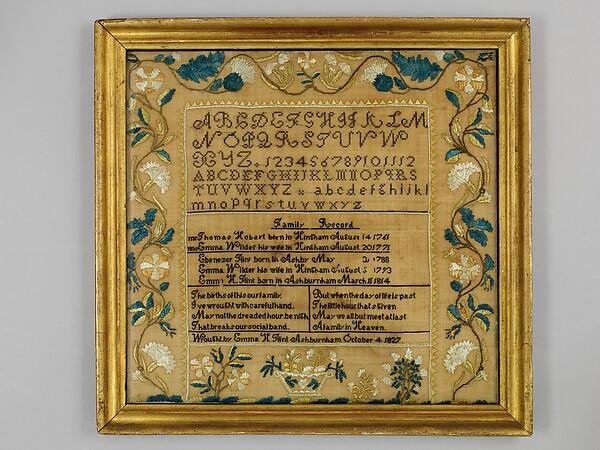 A B C D E F G H I K L M
N O P Q R S T U V W
X Y Z . 1 2 3 4 5 6 7 8 9 10 11 12
A B C D E F G H I J K L M N O P Q R S
T U V W X Y Z a b c d e f g h i j k l
m n o p q r s t u v w x y z
Family Record
mr Thomas Hobart born in Hinham August 14 1761
mrs Emma Wilder his wife in Hinham August 20 1771
Ebenezer Flint born in Ashby May 1788
Emma Wilder his wife in Hinham August 1793
Emma H. Flint born in Ashburnham March 11 1814
The births of this our family.
I've wrought with careful hand.
May not the dreaded hour be nigh
That breaks our social band.
But when the day of life is past
The little hour that's given
May we all but meet at last
A family in Heaven.
Wrought by Emma H Flint Ashburnham October 4 1827